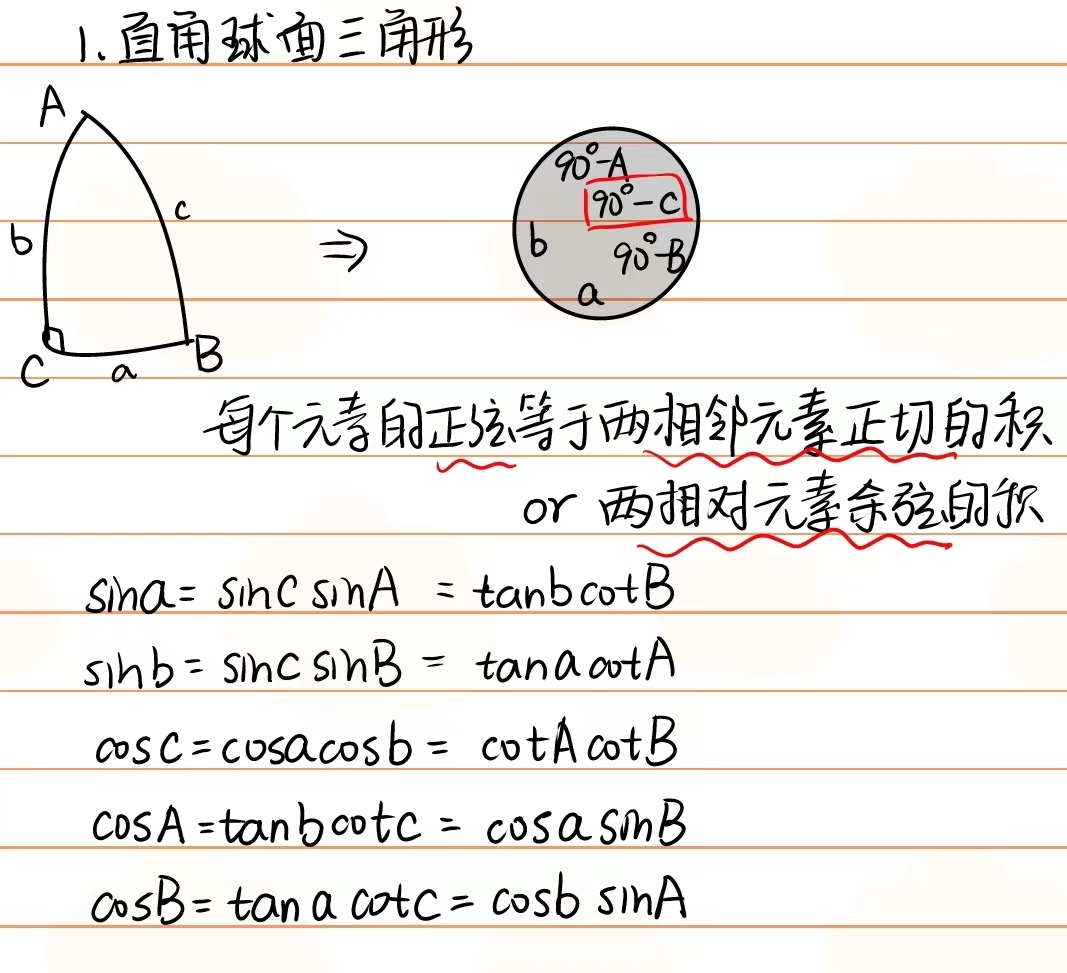 1. 直角球面三角形
A
c
b
C
a
B
⇒
90°-A
90°-c
b
90°-B
a
每个元素的正弦等于两相邻元素正切的积
or 两相对元素余弦的积
sina = sinc sinA = tanb cotB
sinb = sinc sinB = tana cotA
cosc = cosa cosb = cotA cotB
cosA = tanb cotc = cosa sinB
cosB = tana cotc = cosb sinA